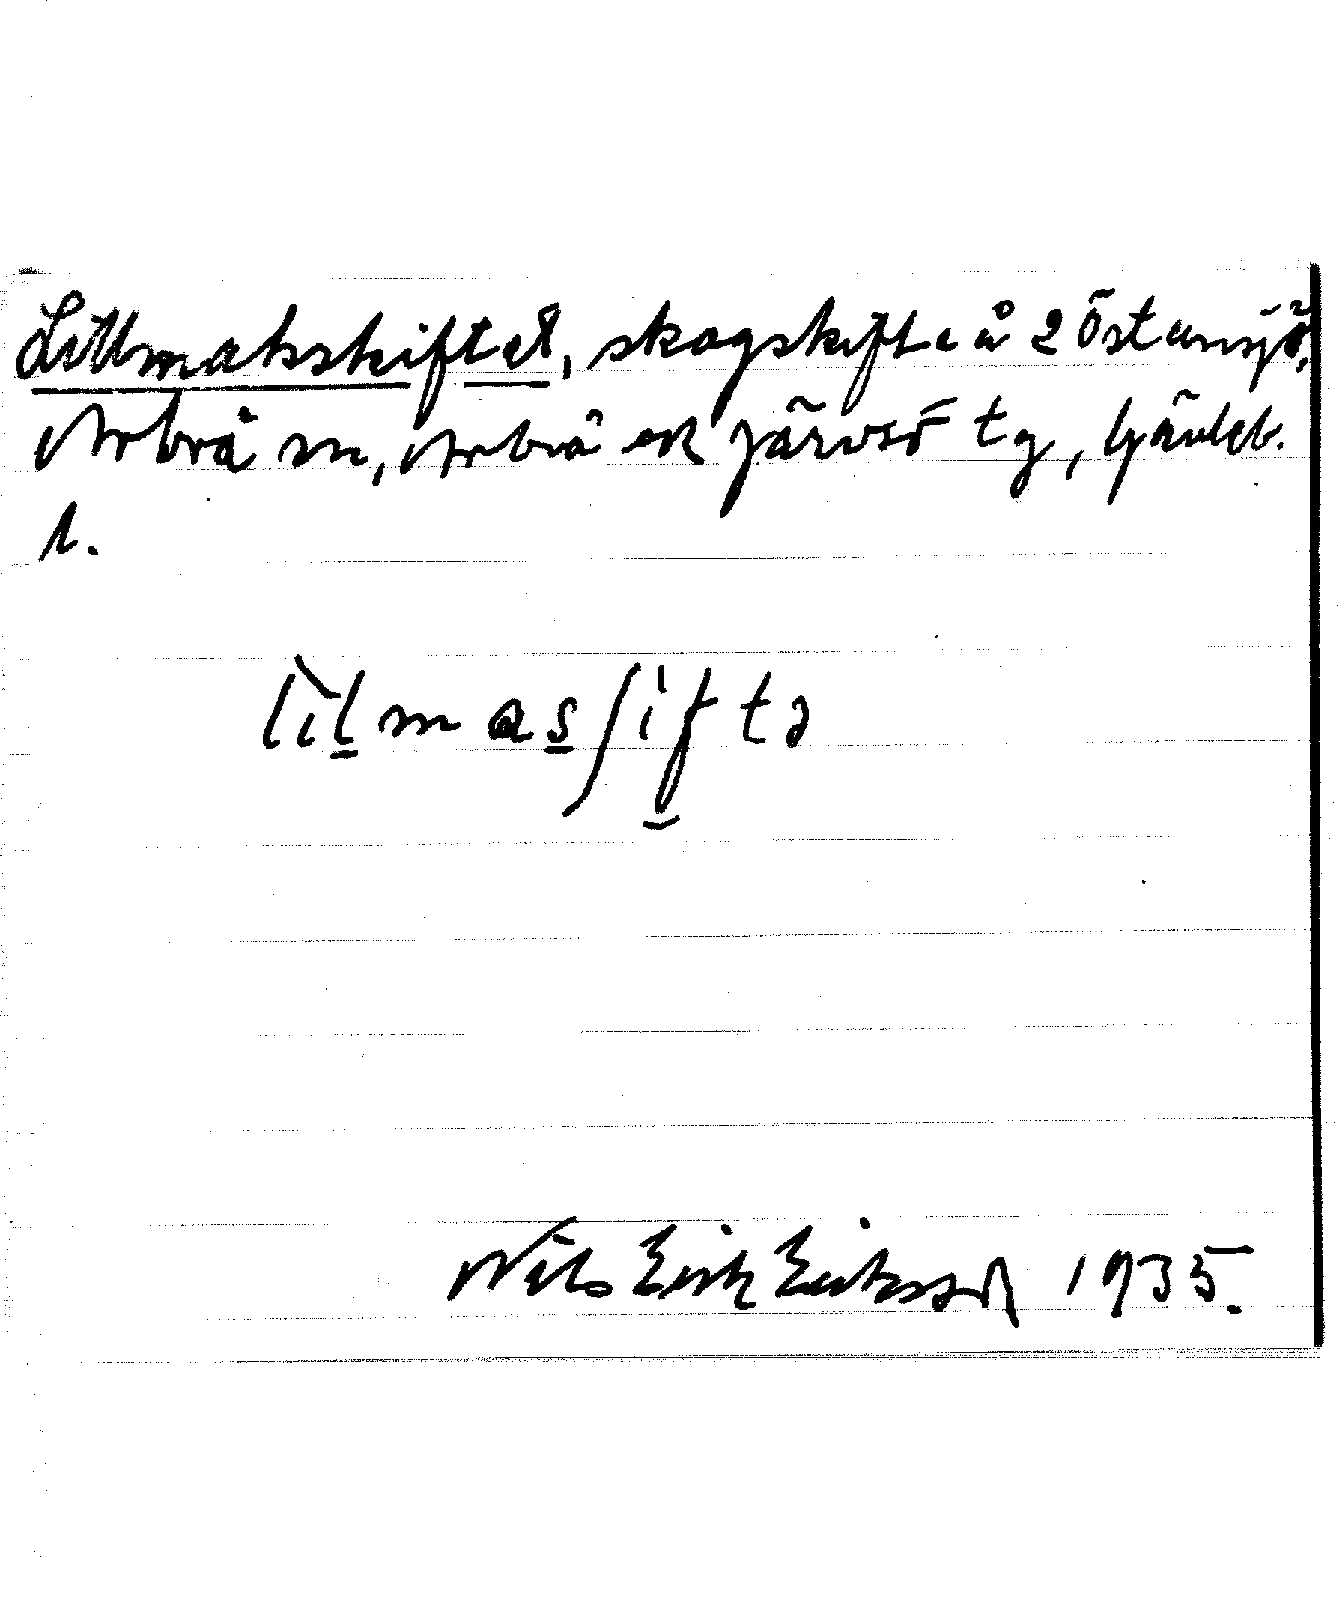 Lillmatsskiftet, skogskifte å 2 Östansjö,
Arbrå sn, Arbrå ok Järvsö tg, Gävleb.
l.
lìlmasʃifta
Nils Erik Eriksson 1935.